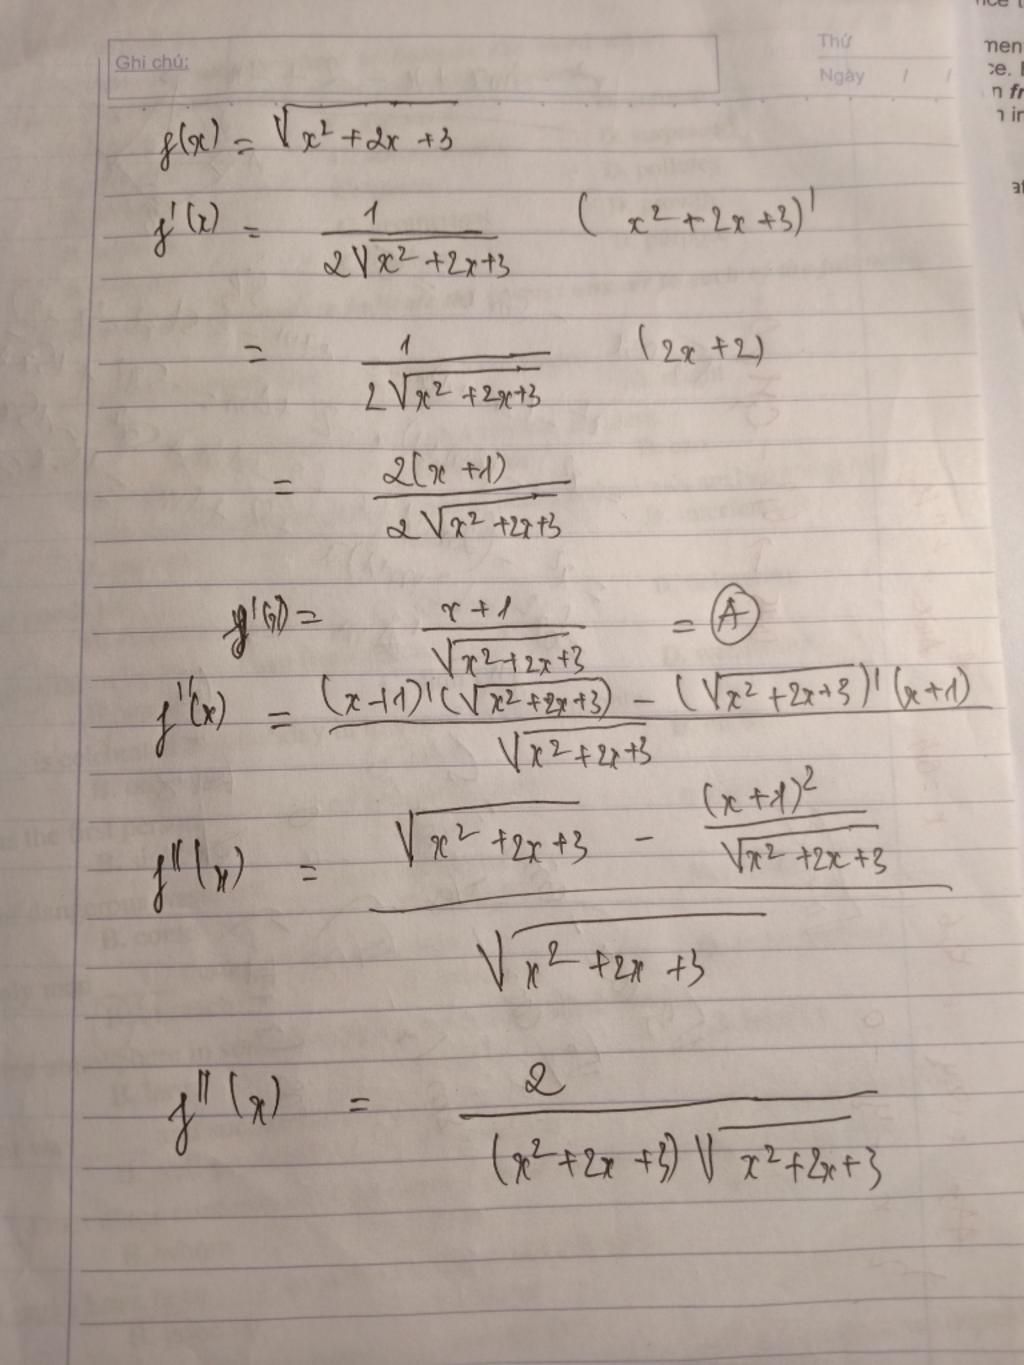 Ghi chú:
Thứ
Ngày / /
f(x) = √(x² + 2x + 3)
f'(x) = 1 / (2√(x² + 2x + 3)) (x² + 2x + 3)'
= 1 / (2√(x² + 2x + 3)) (2x + 2)
= 2(x + 1) / (2√(x² + 2x + 3))
f'(x) = (x + 1) / √(x² + 2x + 3) = Ⓐ
f''(x) = ((x + 1)'(√(x² + 2x + 3)) − (√(x² + 2x + 3))'(x + 1)) / √(x² + 2x + 3)
f''(x) = (√(x² + 2x + 3) − (x + 1)² / √(x² + 2x + 3)) / √(x² + 2x + 3)
f''(x) = 2 / ((x² + 2x + 3)√(x² + 2x + 3))